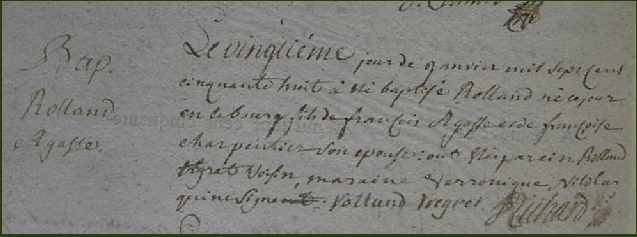 Bap.
Rolland
Agasse.
Le vingtiéme jour de janvier mil sept cent
cinquante huit à été baptisé Rolland né ce jour
en ce bourg fils de françois Agasse et de françoise
charpentier son epouse: ont été parein Rolland
vegret voisin, maraine verronique, Nicolas
qui ne signe Rolland vegret Richard